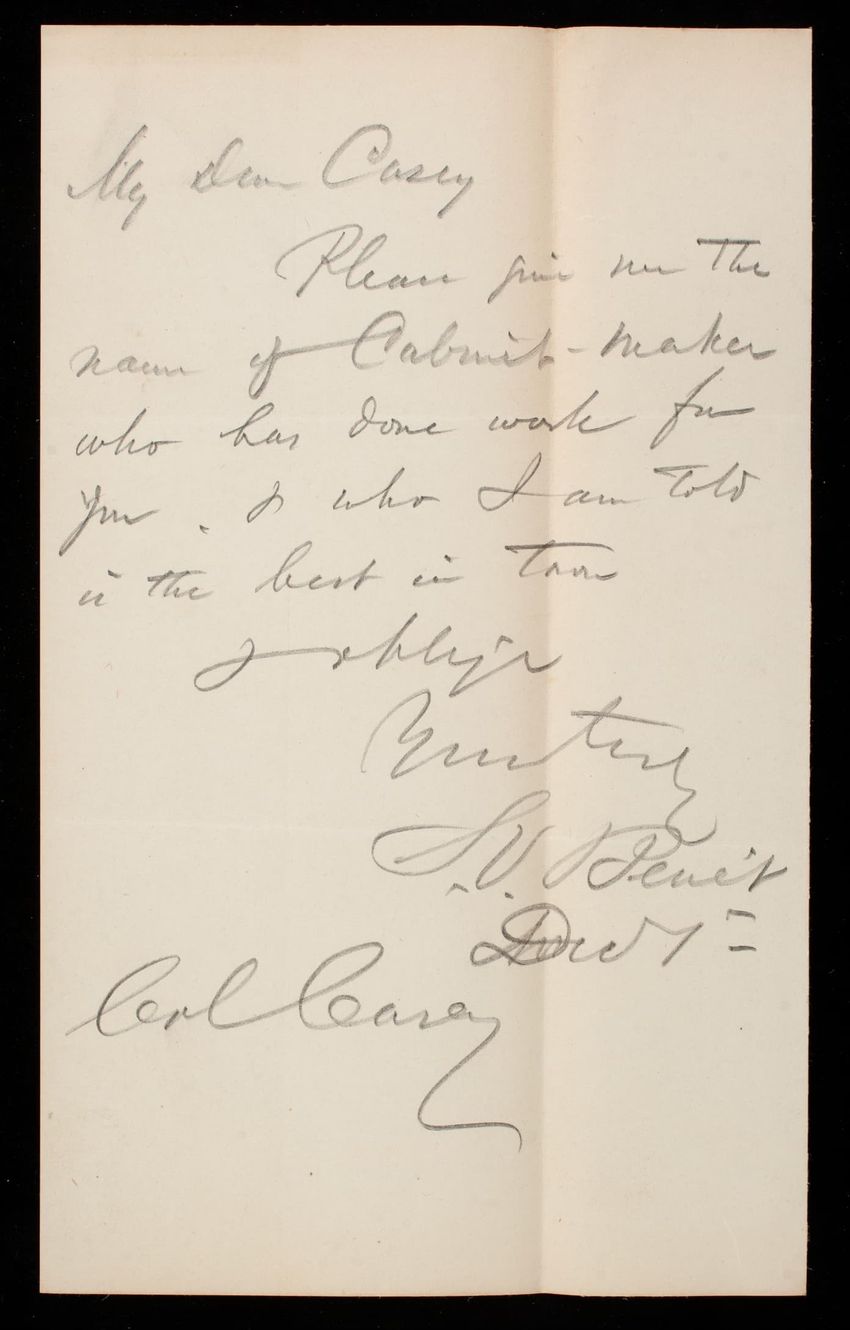 My Dear Casey
Please give me the
name of Cabinet-maker
who has done work for
you . & who I am told
is the best in town
& oblige
Yours truly
S. V. Benét
Dec 1
Col Casey